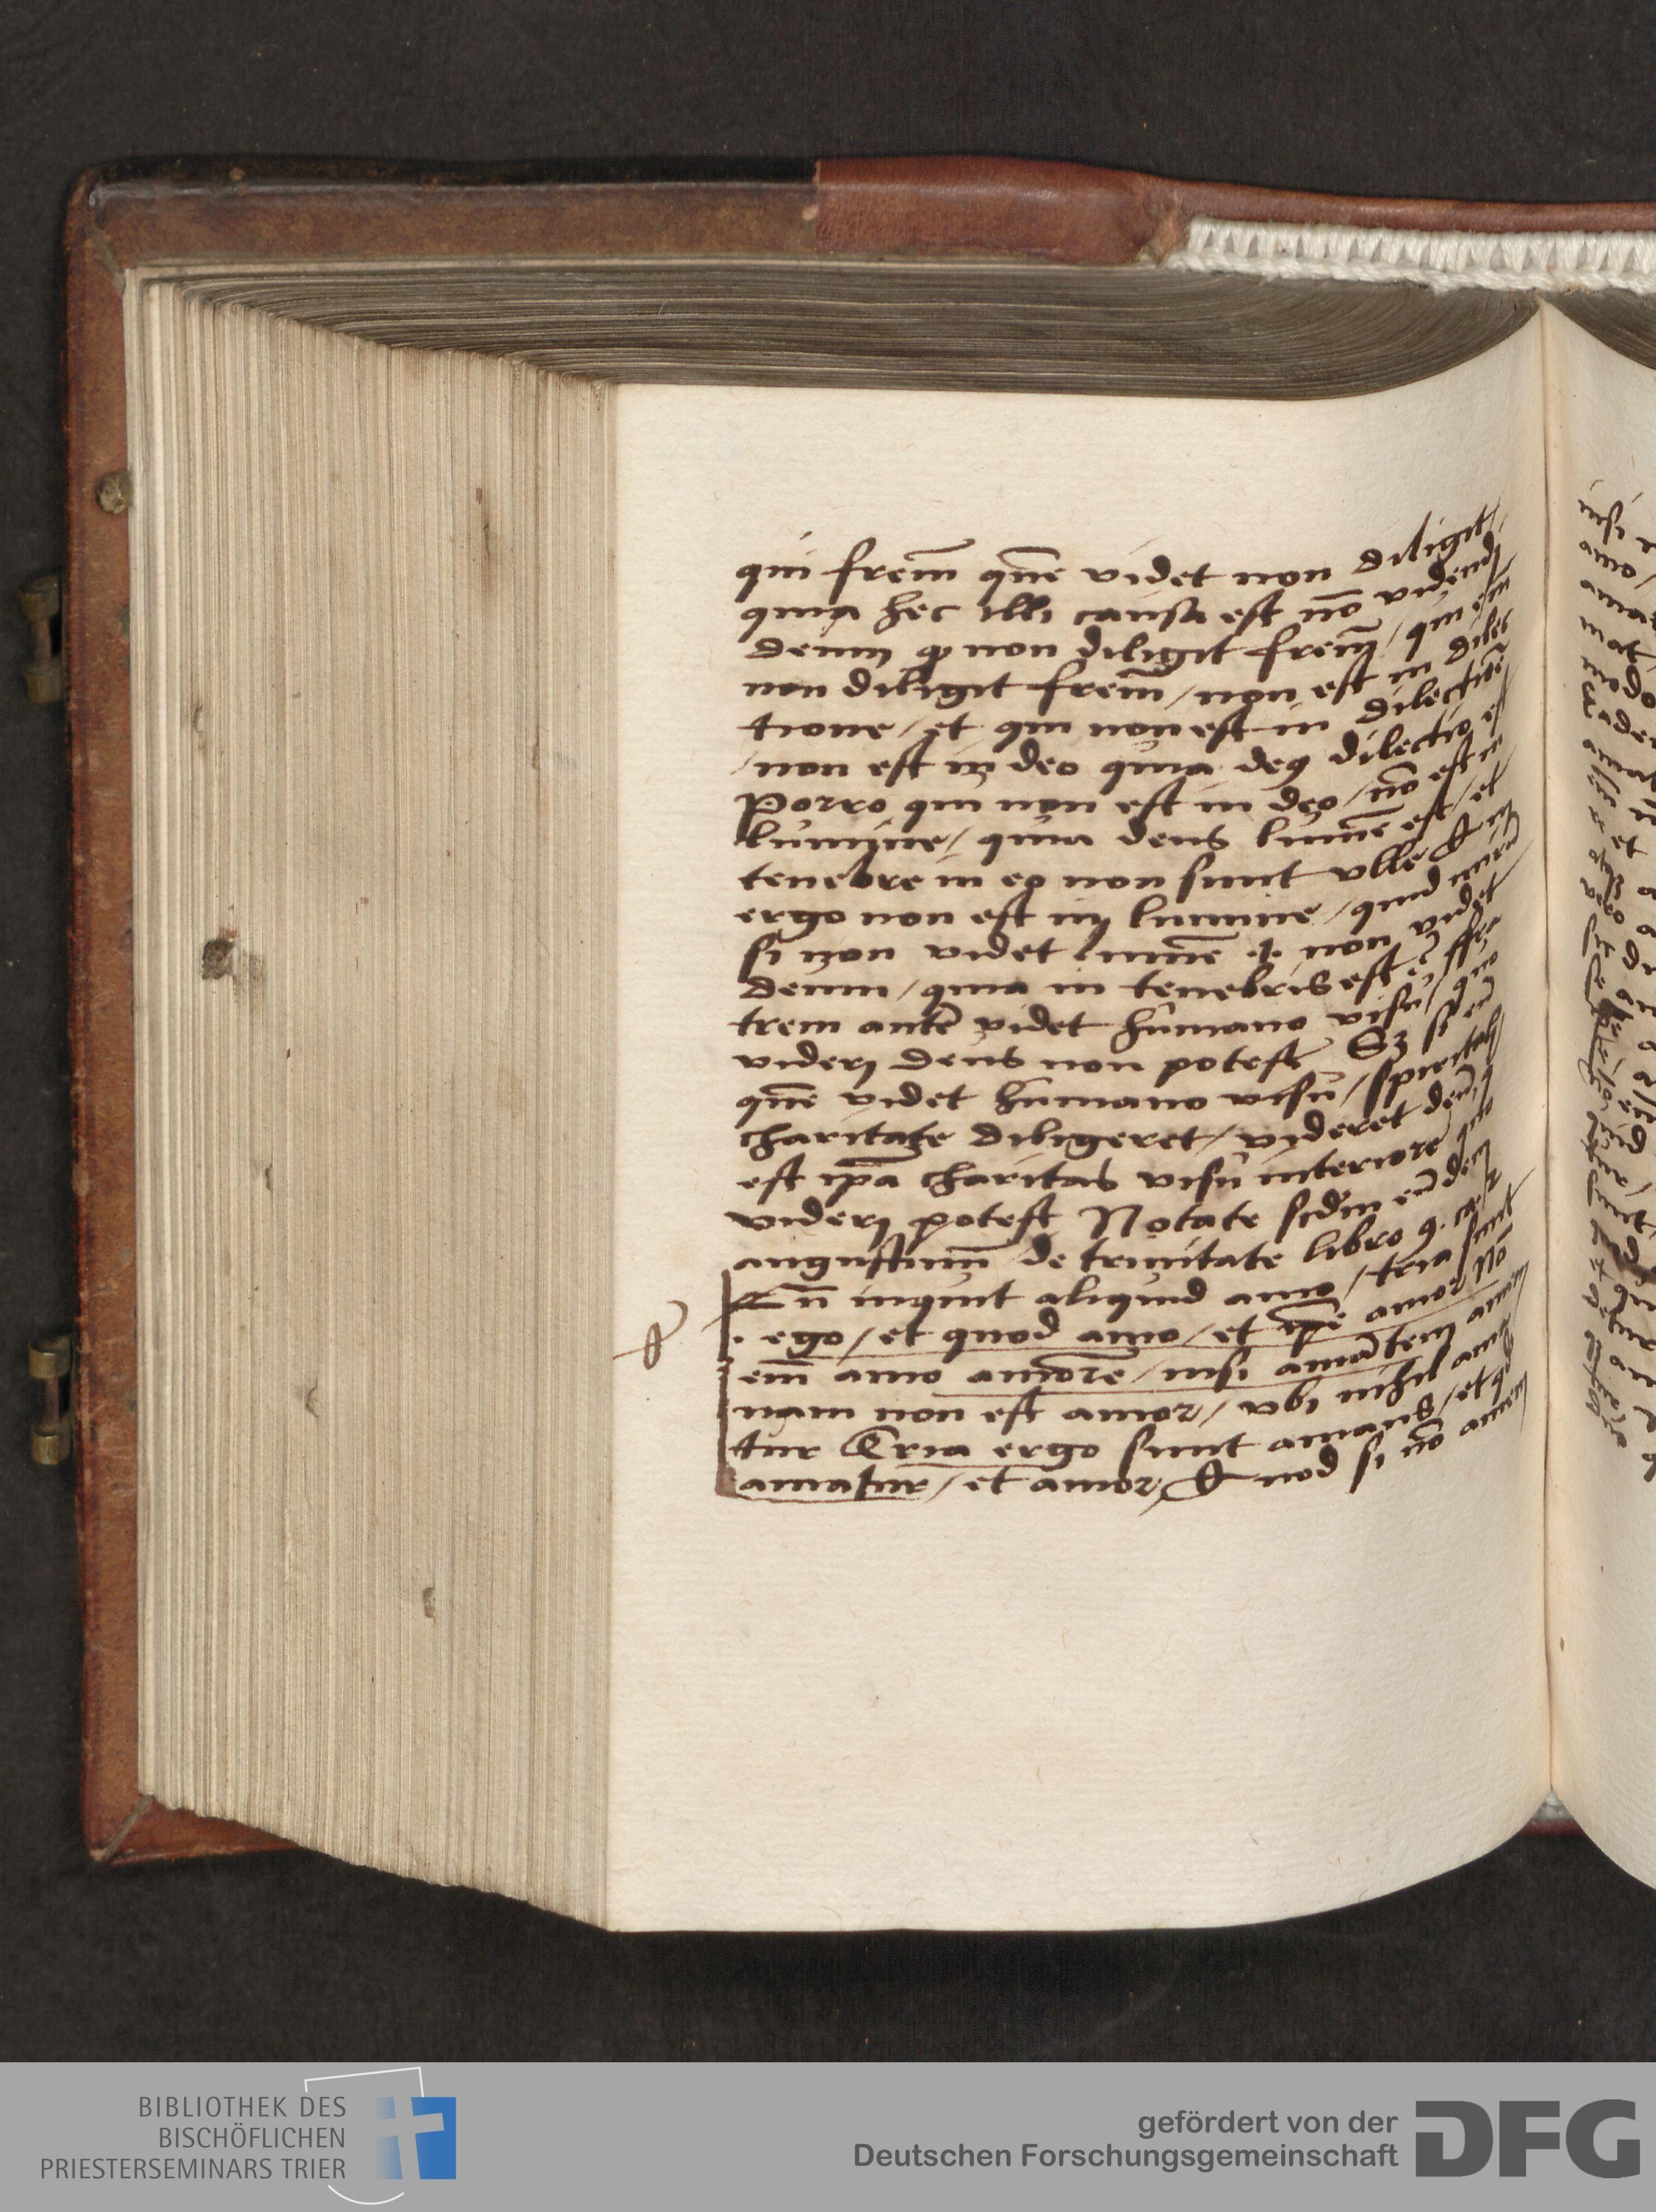 qui frem̄ quē videt non diligit/
quia hec illi causa est nō videndj
deum ꝙ non diligit frem̄/ qui em̄
non diligit frem̄/ non est in dilec
tione/ et qui non est in dilectiōe
/non est in deo quia deꝰ dilectio est
Porro qui non est in deo/ nō est in
lumine/ quia deus lumē est/ et
tenebre in eo non sunt vlle Qui
ergo non est in lumine/ quid mirū
si non videt lumē .i. non videt
deum/ quia in tenebris est
trem autē videt humano visu/ quo
viderj deus non potest Sꝫ si eū
quē videt humano visu/ spiritalj
charitate diligeret/ videret deū/
est ip̄a charitas visu interiore quo
viderj potest Notate
augustinū de trinitate libro 9.
inquit aliquid amo/ tria sunt
. ego/ et quod amo/ et ip̄e amor Nō
em̄ amo amorē/ nisi amātem amem
nam non est amor/ vbi nihil ama
tur Tria ergo sunt amans/ et qd̄
amatur/ et amor/ Quod si nō amem
BIBLIOTHEK DES
BISCHÖFLICHEN
PRIESTERSEMINARS TRIER
gefördert von der
Deutschen Forschungsgemeinschaft
DFG